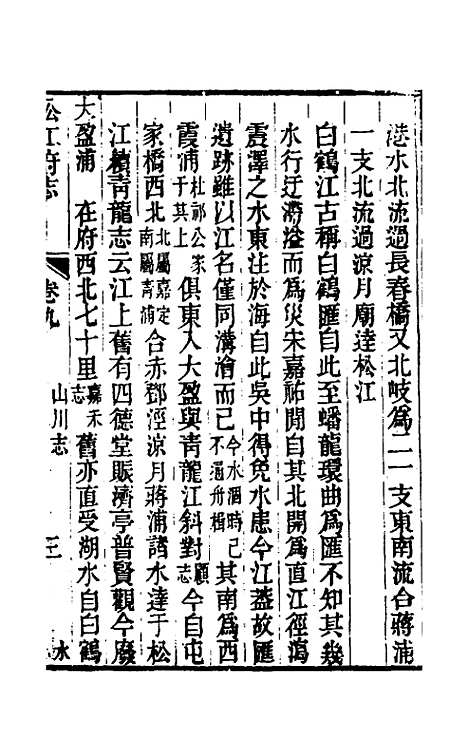 港水北流過長春橋又北岐為二一支東南流合蔣浦
一支北流過涼月廟達松江
白鶴江古稱白鶴匯自此至蟠龍環曲為匯不知其幾
水行迂滯溢而為災宋嘉祐閒自其北開為直江徑瀉
震澤之水東注於海自此吳中得免水患今江蓋故匯
遺跡雖以江名僅同溝澮而已今水涸時已不通舟楫其南為西
霞浦杜祁公家于其上俱東入大盈與青龍江斜對顧志今自屯
家橋西北北屬嘉定南屬青浦合赤鄧涇涼月蔣浦諸水達于松
江續青龍志云江上舊有四德堂賑濟亭普賢觀今廢
大盈浦 在府西北七十里嘉禾志舊亦直受湖水自白鶴
松江府志 卷九 山川志